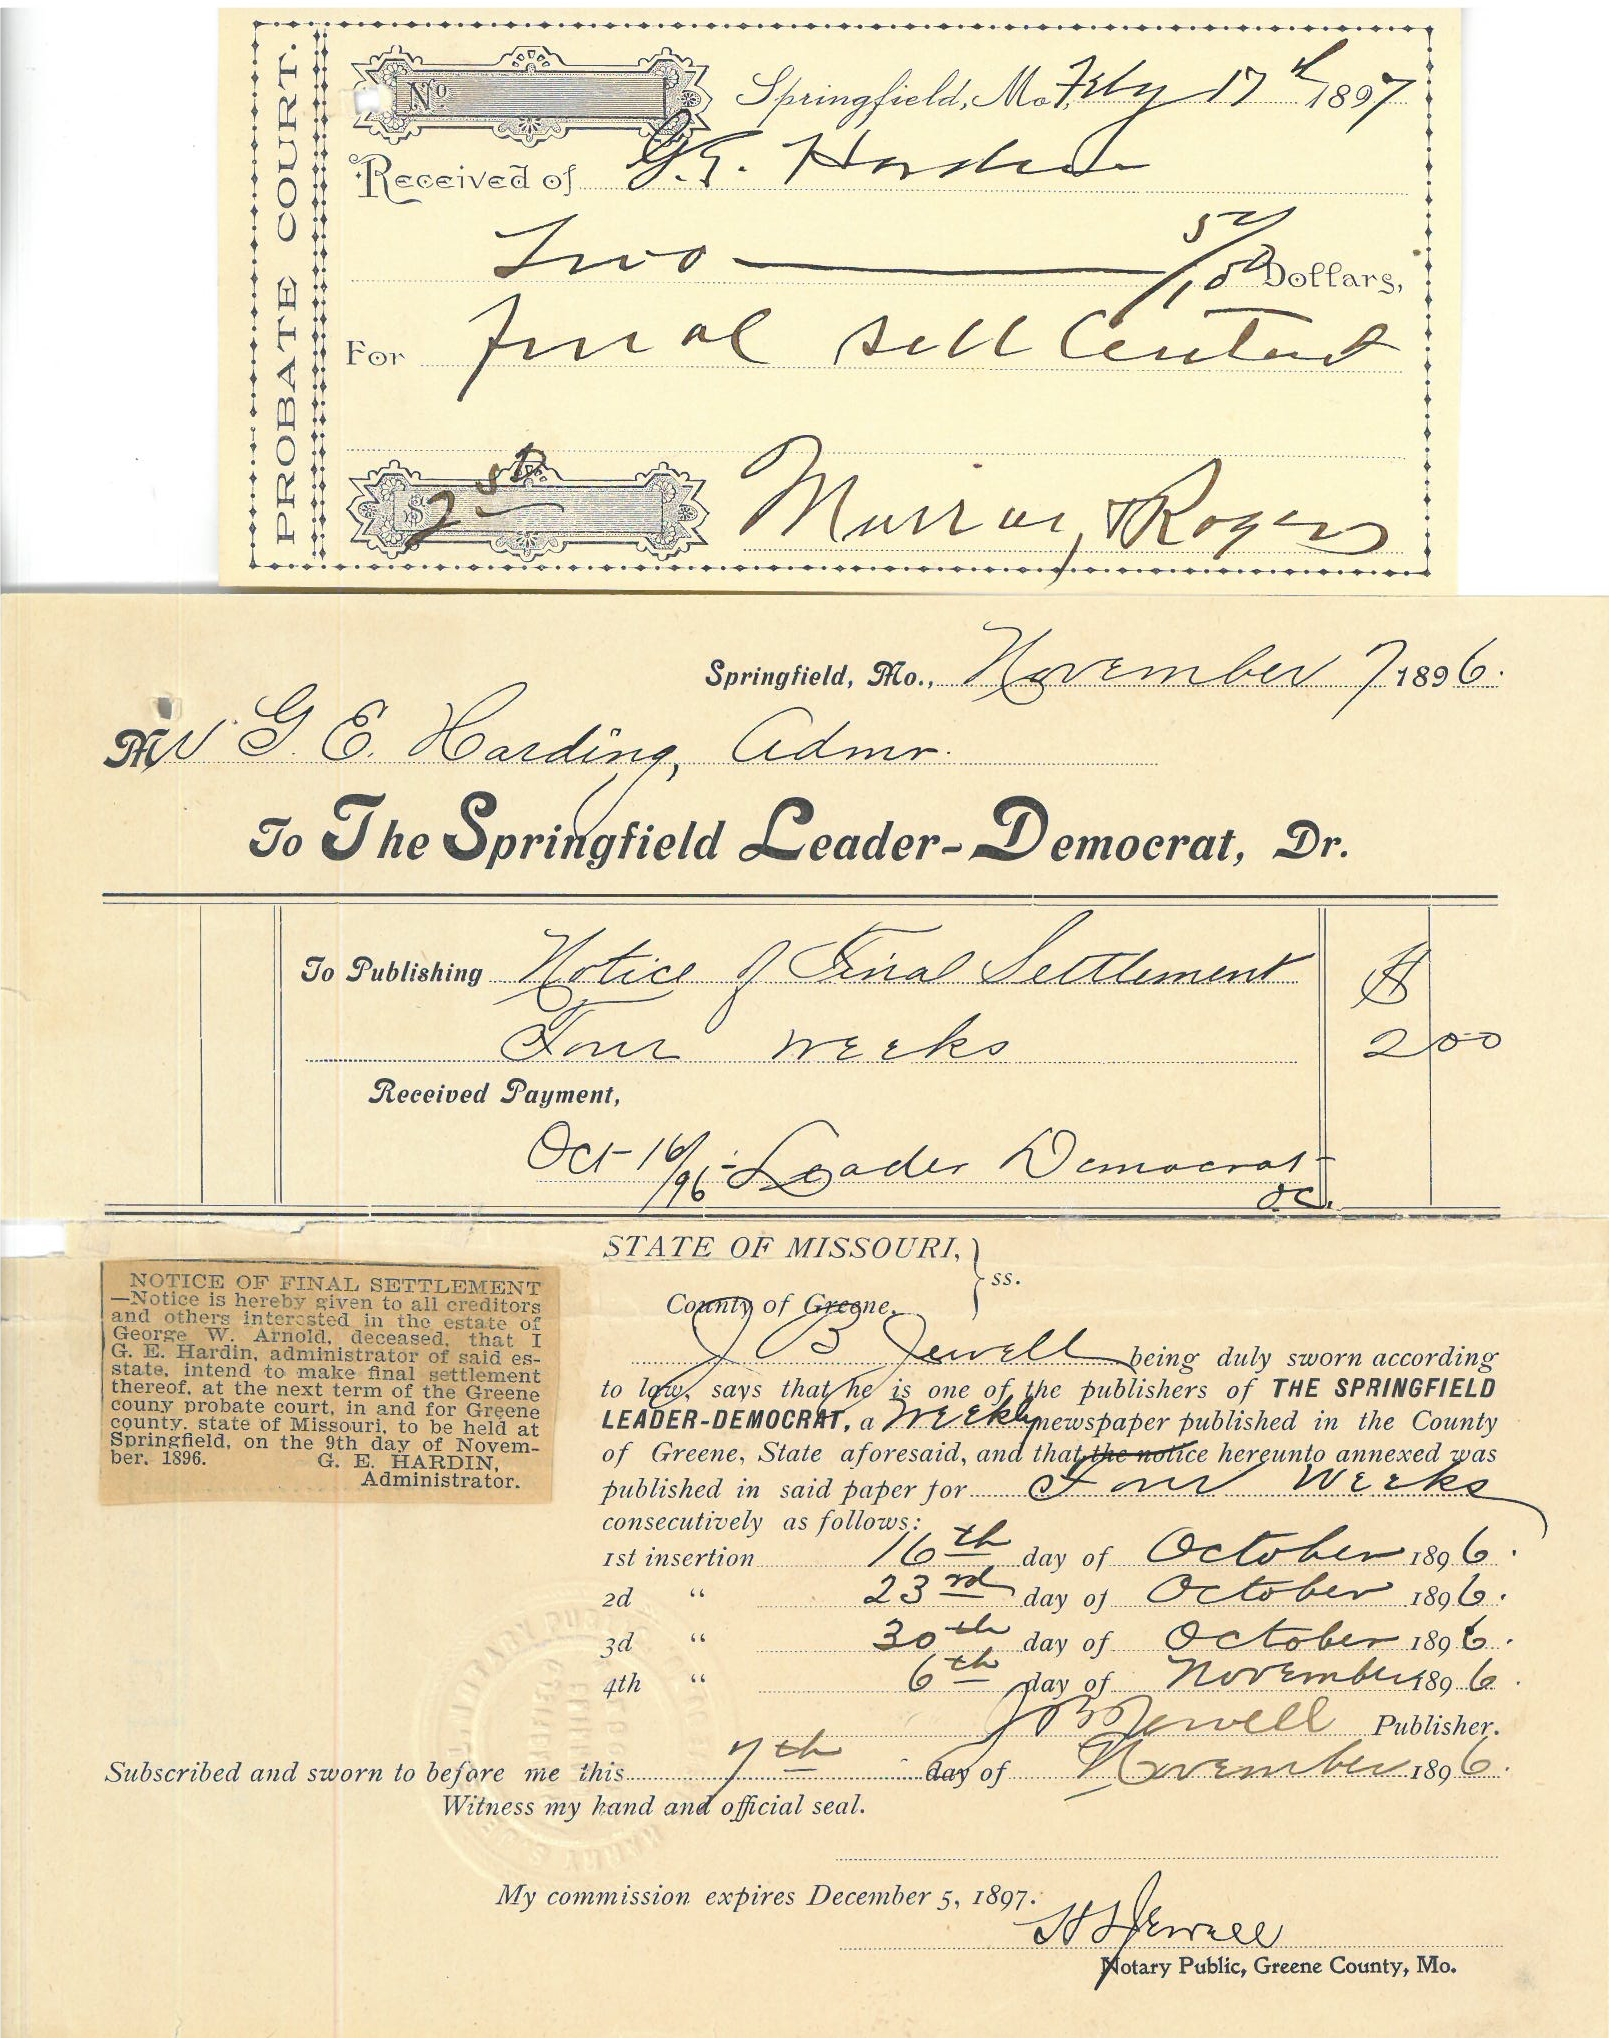 PROBATE COURT.
No
Springfield, Mo., Feby 17th 1897
Received of G.E. Hardin
Two 50/100 Dollars,
For Final Settl
$2 50
Murray & Rogers
Springfield, Mo., November 7 1896.
Mr G. E. Harding, Admr.
To The Springfield Leader-Democrat, Dr.
To Publishing Notice of Final Settlement $
Four weeks 2 00
Received Payment,
Oct 16/96 - Leader Democrat
STATE OF MISSOURI, } ss.
County of Greene.
NOTICE OF FINAL SETTLEMENT
—Notice is hereby given to all creditors
and others interested in the estate of
George W. Arnold, deceased, that I
G. E. Hardin, administrator of said es-
state, intend to make final settlement
thereof, at the next term of the Greene
couny probate court, in and for Greene
county, state of Missouri, to be held at
Springfield, on the 9th day of Novem-
ber, 1896. G. E. HARDIN,
Administrator.
J B Jewell being duly sworn according
to law, says that he is one of the publishers of THE SPRINGFIELD
LEADER-DEMOCRAT, a Weekly newspaper published in the County
of Greene, State aforesaid, and that the notice hereunto annexed was
published in said paper for Four Weeks
consecutively as follows:
1st insertion 16th day of October 1896.
2d " 23rd day of October 1896.
3d " 30th day of October 1896.
4th " 6th day of November 1896.
J B Jewell Publisher.
Subscribed and sworn to before me this 7th day of November 1896.
Witness my hand and official seal.
My commission expires December 5, 1897.
H S Jewell
Notary Public, Greene County, Mo.